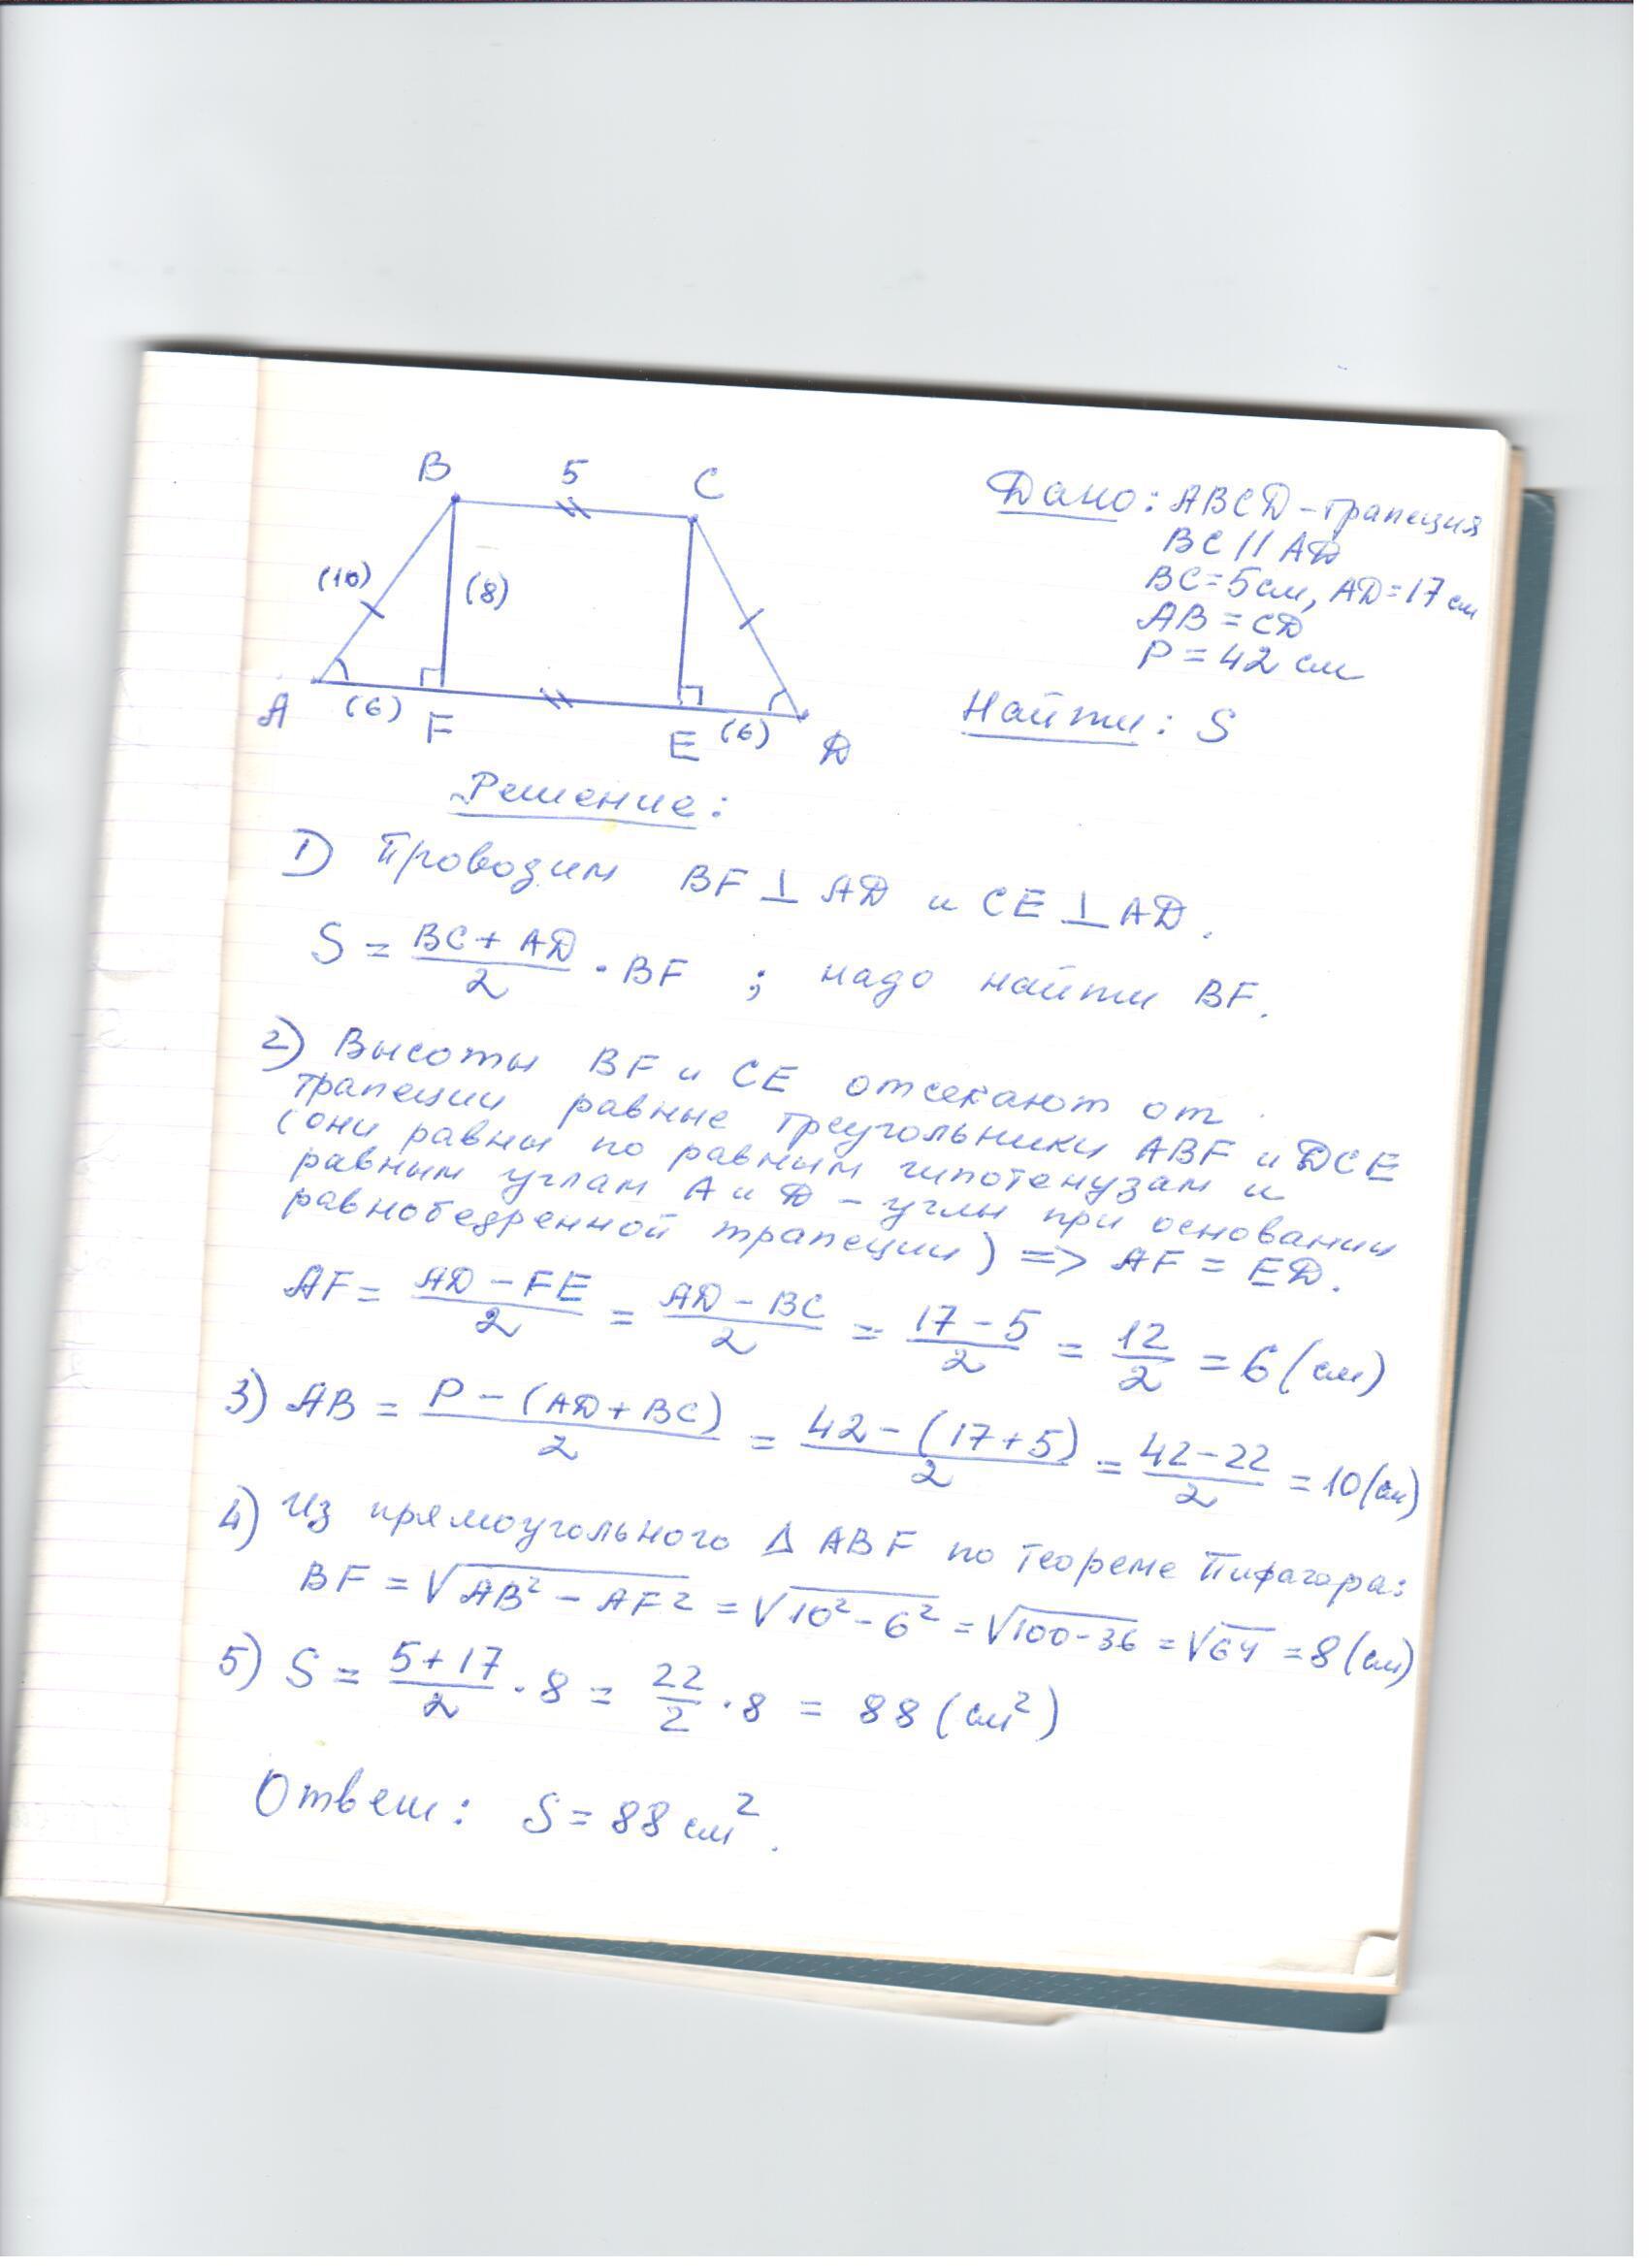 B 5 C
(10) (8)
A (6) F E (6) D
Дано: ABCD - трапеция
BC || AD
BC = 5 см, AD = 17 см
AB = CD
P = 42 см
Найти: S
Решение:
1) Проводим BF ⊥ AD и CE ⊥ AD.
S = (BC + AD)/2 · BF ; надо найти BF.
2) Высоты BF и CE отсекают от
трапеции равные треугольники ABF и DCE
(они равны по равным гипотенузам и
равным углам A и D - углы при основании
равнобедренной трапеции) => AF = ED.
AF = (AD - FE)/2 = (AD - BC)/2 = (17 - 5)/2 = 12/2 = 6 (см)
3) AB = (P - (AD + BC))/2 = (42 - (17 + 5))/2 = (42 - 22)/2 = 10 (см)
4) Из прямоугольного Δ ABF по теореме Пифагора:
BF = √(AB² - AF²) = √(10² - 6²) = √(100 - 36) = √64 = 8 (см)
5) S = (5 + 17)/2 · 8 = 22/2 · 8 = 88 (см²)
Ответ: S = 88 см².